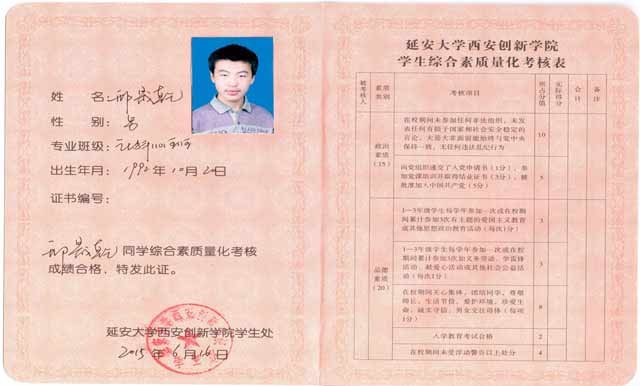 姓 名:
性 别: 男
专业班级:
出生年月: 1992年10月20日
证书编号:
同学综合素质量化考核
成绩合格，特发此证。
延安大学西安创新学院学生处
2015年6月16日
延安大学西安创新学院
学生综合素质量化考核表
被考核人 素质类别 考核项目 所占分值 实际得分 合计 备注
政治素质（15）
在校期间未参加任何非法组织，未发
表任何有损于国家和社会安全稳定的
言论，大是大非面前能始终与党中央
保持一致，无任何违法乱纪行为
10
向党组织递交了入党申请书（1分），参
加党课培训并取得结业证书（3分），被
批准加入中国共产党（5分）
5
品德素质（20）
1—3年级学生每学年参加一次或在校期
间累计参加3次有主题的爱国主义教育
或其他思想政治教育活动（每次1分）
3
1—3年级学生每学年参加一次或在校
期间累计参加3次义务劳动、学雷锋
活动、献爱心活动或其他社会公益活
动（每次1分）
3
在校期间关心集体，团结同学，尊敬
师长，生活节俭，爱护环境，珍爱生
命，诚实守信，男女交往得体（每
项1分）
8
入学教育考试合格 2
在校期间未受浮动警告以上处分 4